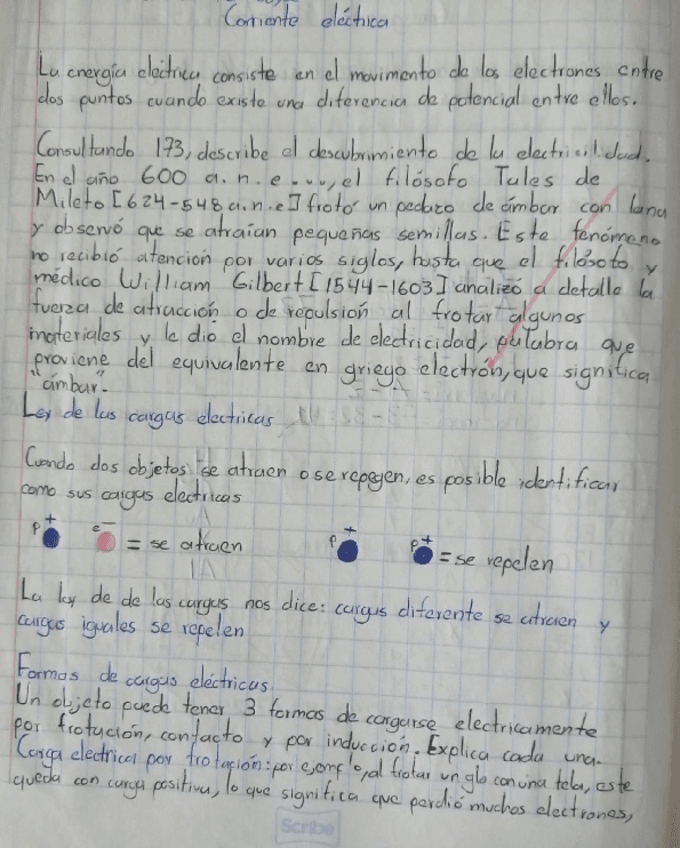 Corriente eléctrica
La energía eléctrica consiste en el movimento de los electrones entre
dos puntos cuando existe una diferencia de potencial entre ellos.
Consultando 173, describe el descubrimiento de la electricilidad.
En el año 600 a.n.e..., el filósofo Tales de
Mileto [624-548 a.n.e] frotó un pedazo de ámbar con lana
y observó que se atraían pequeñas semillas. Este fenómeno
no recibió atención por varios siglos, hasta que el filósofo y
médico William Gilbert [1544-1603] analizó a detalle la
fuerza de atracción o de repulsión al frotar algunos
materiales y le dio el nombre de electricidad, palabra que
proviene del equivalente en griego electrón, que significa
"ámbar".
Ley de las cargas electricas
Cuando dos objetos se atraen o se repegen, es posible identificar
como sus cargas electricas
p + e - = se atraen p + p + = se repelen
La ley de de las cargas nos dice: cargas diferente se atraen y
cargas iguales se repelen
Formas de cargas eléctricas
Un objeto puede tener 3 formas de cargarse electricamente
por frotación, contacto y por inducción. Explica cada una.
Carga electrica por frotación: por ejemplo, al frotar un glo con una tela, este
queda con carga positiva, lo que significa que perdió muchos electrones,
Scribe